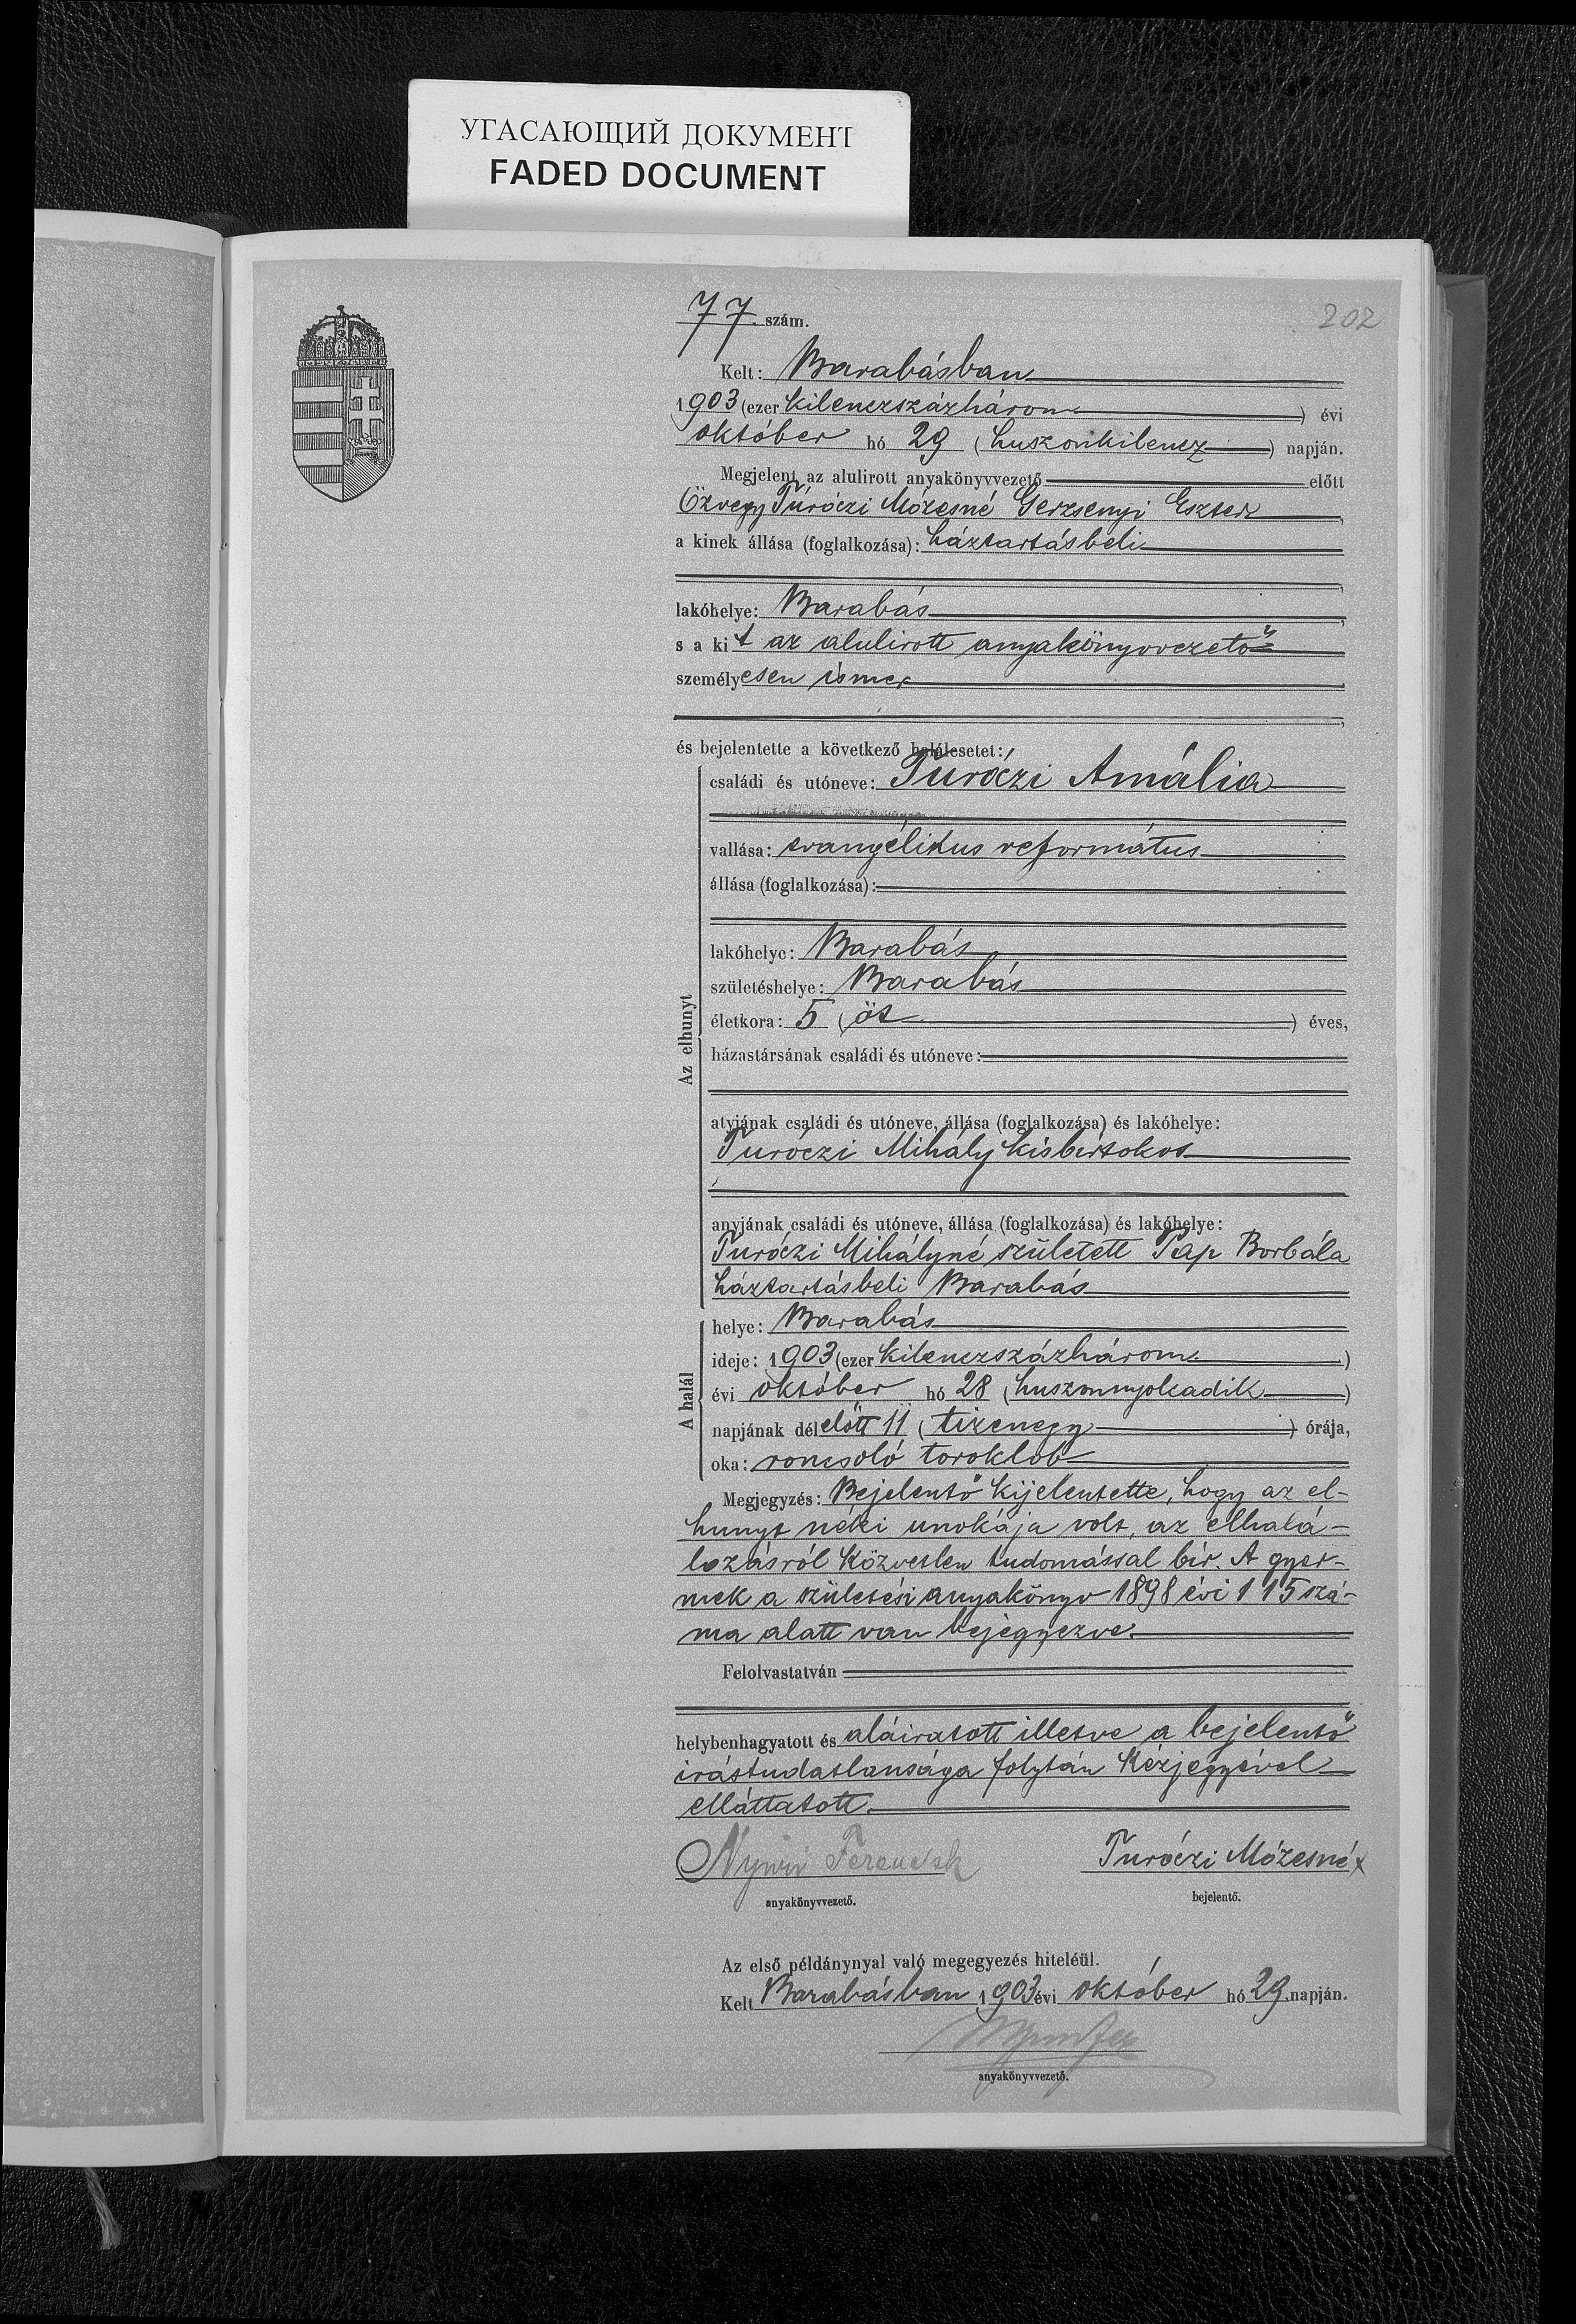 УГАСАЮЩИЙ ДОКУМЕНТ
FADED DOCUMENT
202
77. szám.
Kelt: Barabásban
1903 (ezer kilenczszázhárom) évi
október hó 29 (huszonkilencz) napján.
Megjelent az alulirott anyakönyvvezető előtt
Özvegy Túróczi Mózesné Gerzsenyi Eszter,
a kinek állása (foglalkozása): háztartásbeli
lakóhelye: Barabás,
s a kit az alulirott anyakönyvvezető
személyesen ismer,
és bejelentette a következő halálesetet:
családi és utóneve: Túróczi Amália
vallása: evangélikus református
állása (foglalkozása):
lakóhelye: Barabás
születéshelye: Barabás
életkora: 5 (öt) éves,
házastársának családi és utóneve:
Az elhunyt
atyjának családi és utóneve, állása (foglalkozása) és lakóhelye:
Turóczi Mihály kisbirtokos
anyjának családi és utóneve, állása (foglalkozása) és lakóhelye:
Turóczi Mihályné született Pap Borbála
háztartásbeli Barabás
A halál
helye: Barabás
ideje: 1903 (ezer kilenczszázhárom)
évi október hó 28 (huszonnyolcadik)
napjának délelőtt 11 (tizenegy) órája,
oka: roncsoló toroklob
Megjegyzés: Bejelentő kijelentette, hogy az el-
hunyt néki unokája volt, az elhalá-
lozásról közvetlen tudomással bír. A gyer-
mek a születési anyakönyv 1898 évi 115 szá-
ma alatt van bejegyezve.
Felolvastatván
helybenhagyatott és aláiratott illetve a bejelentő
irástudatlansága folytán kézjegyével
elláttatott.
Ferencz
Turóczi Mózesné x
anyakönyvvezető.
bejelentő.
Az első példánynyal való megegyezés hiteléül.
Kelt Barabásban 1903 évi október hó 29. napján.
anyakönyvvezető.